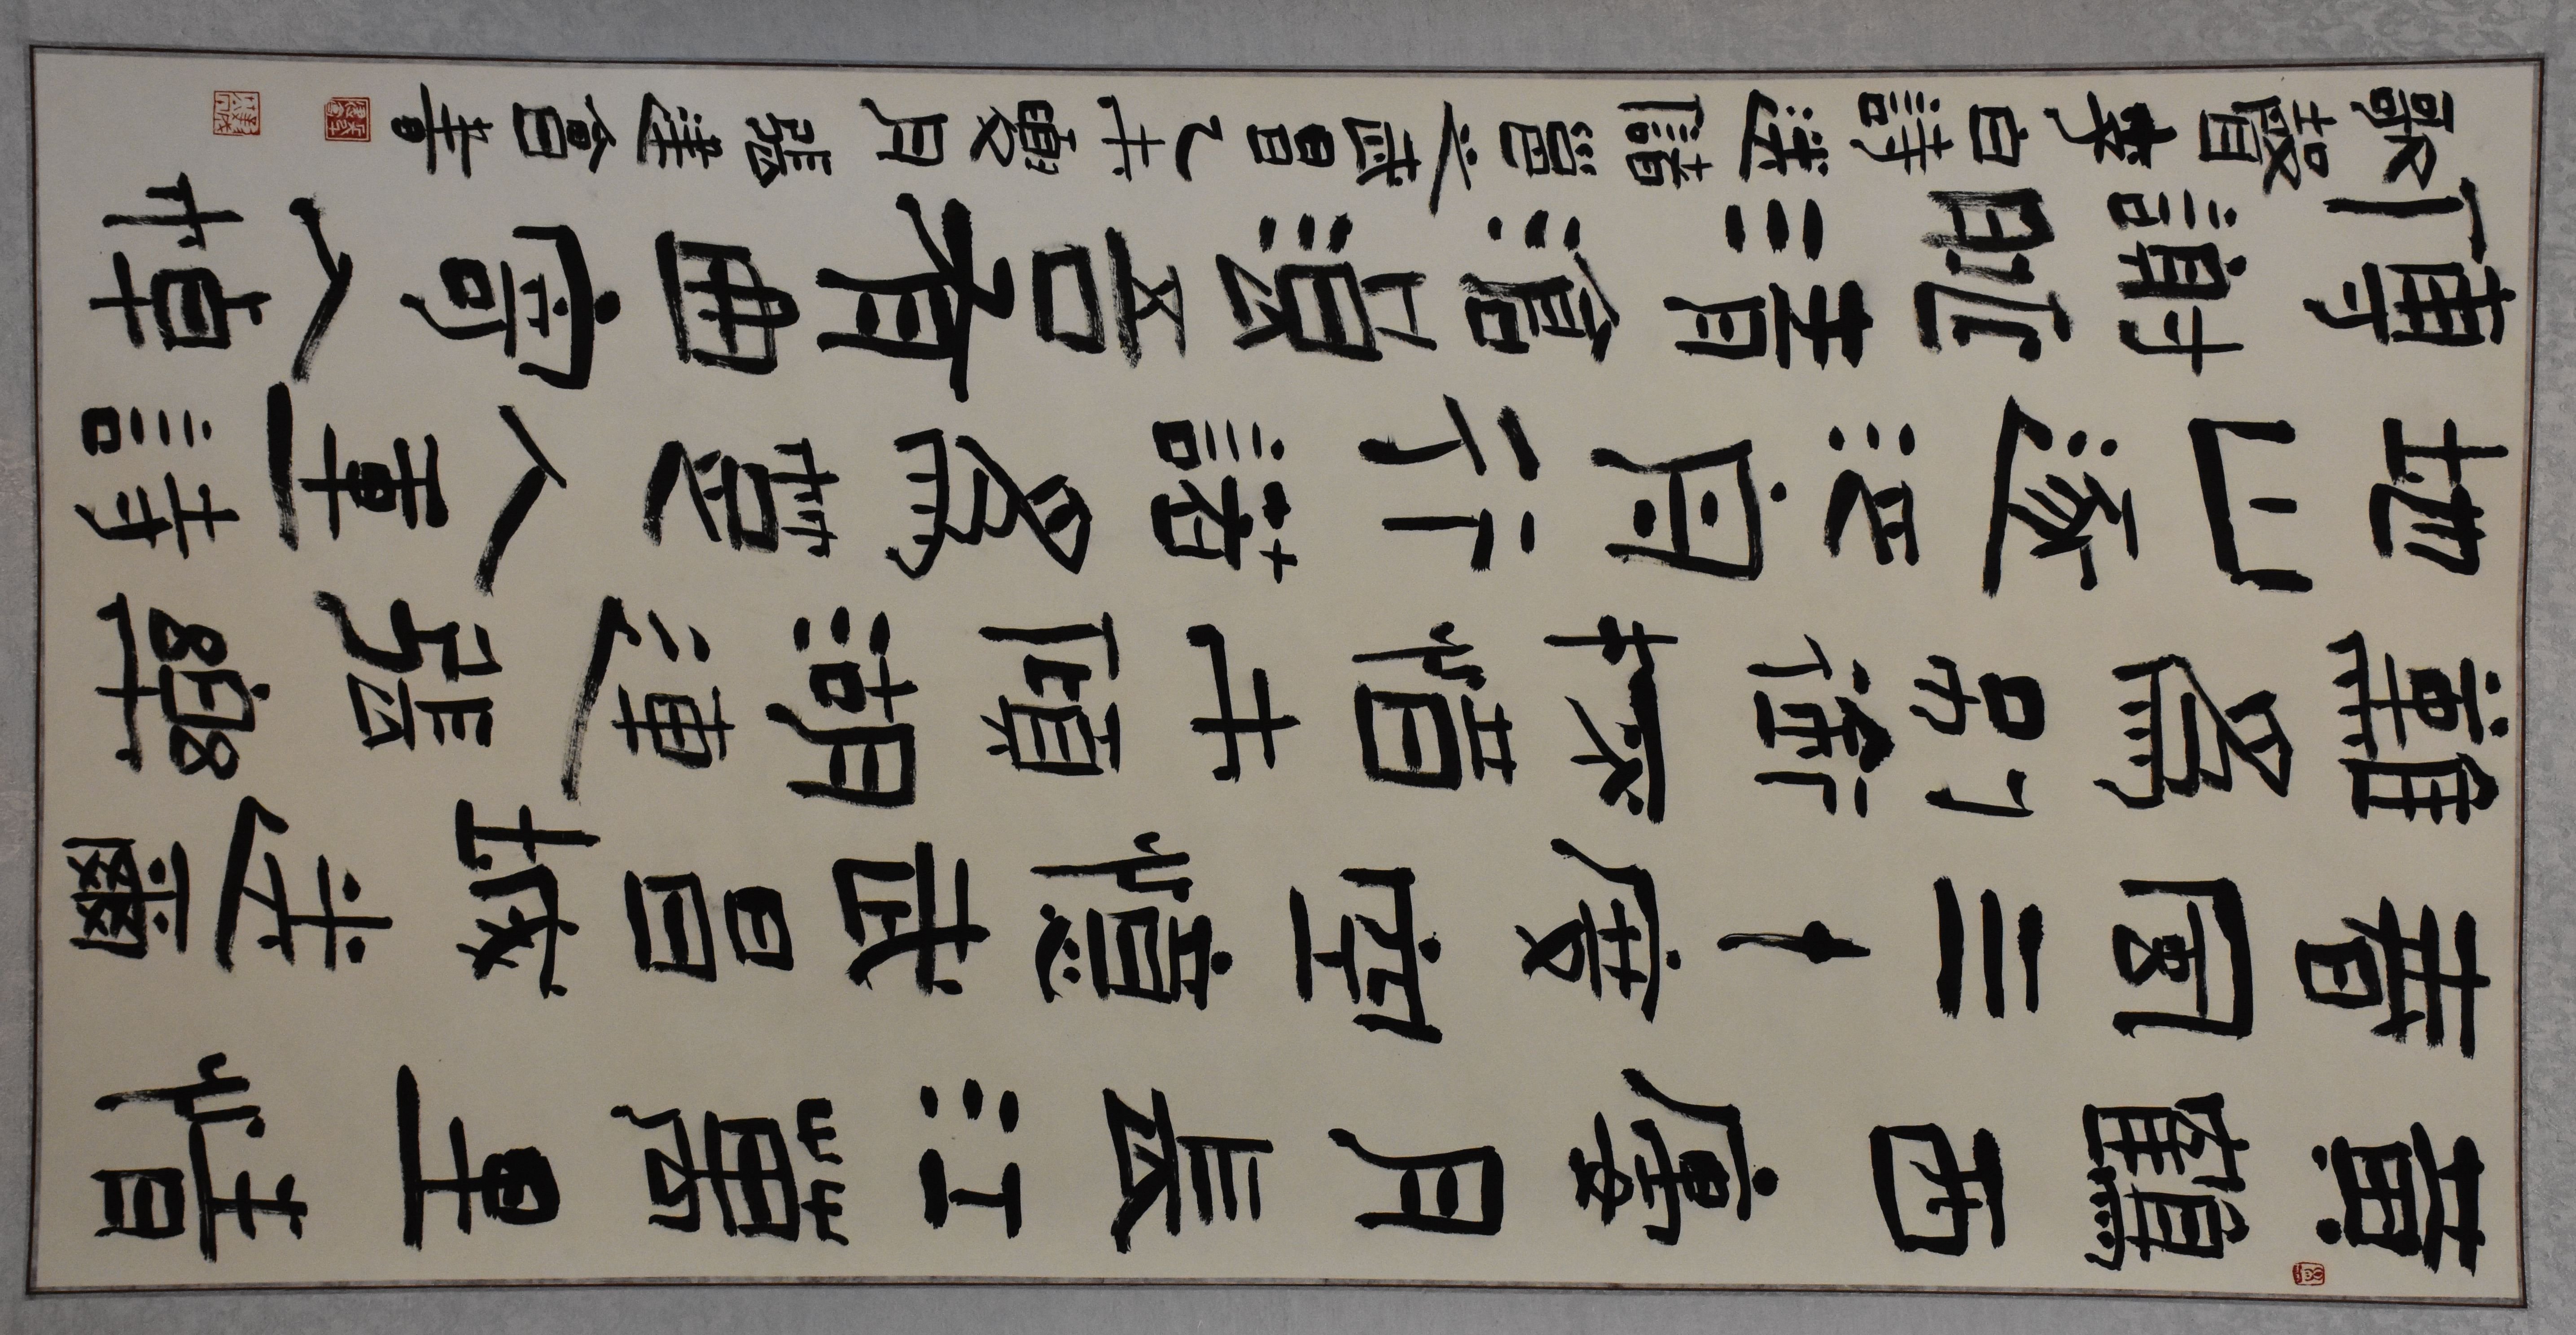 黃鶴西樓月長江萬里情
春風三十度空憶武昌城送爾
難為別銜杯惜未傾湖連張樂
地山逐泛舟行諾為楚人重詩
傳謝朓清滄浪吾有曲寄入棹
歌聲李白詩送儲邕之武昌乙未夏月張建會書